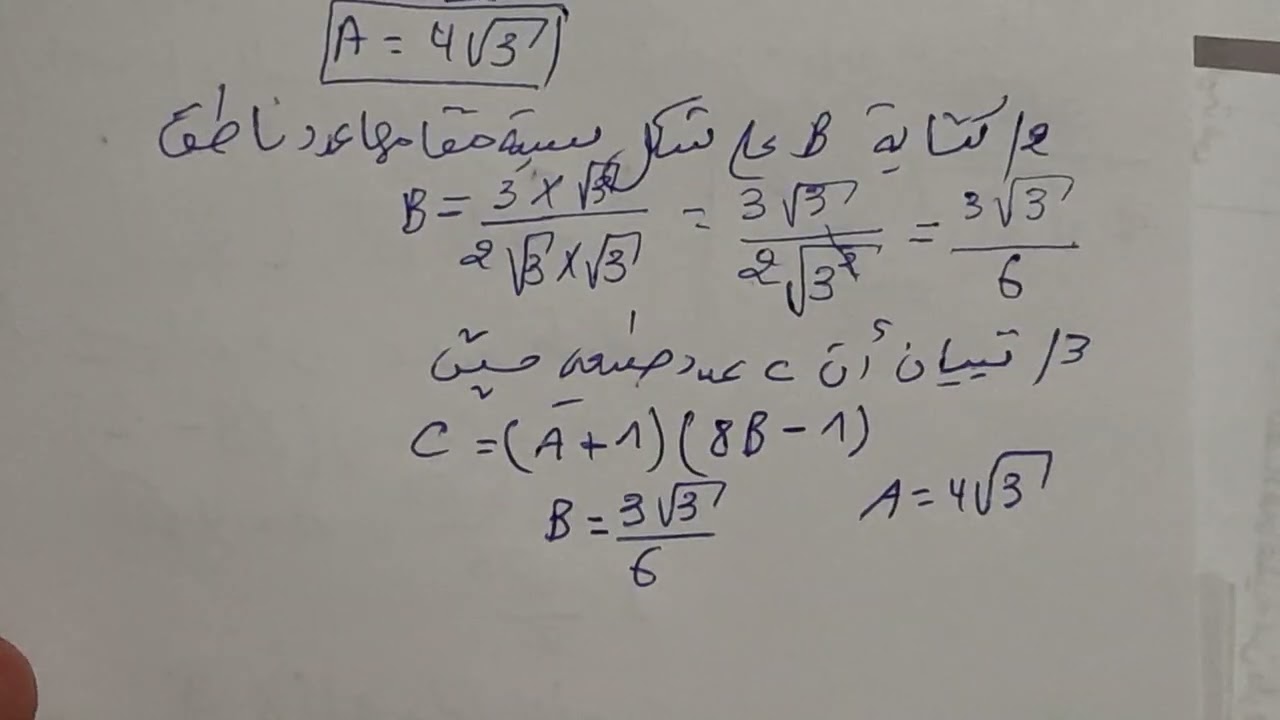 A = 4√3
2/ كتابة B على شكل نسبة مقامها عدد ناطق
B = (3 × √3)/(2√3 × √3) = 3√3/(2√3²) = 3√3/6
3/ تبيان أن C عدد طبيعي حيث
C = (A + 1)(8B - 1)
B = 3√3/6 A = 4√3